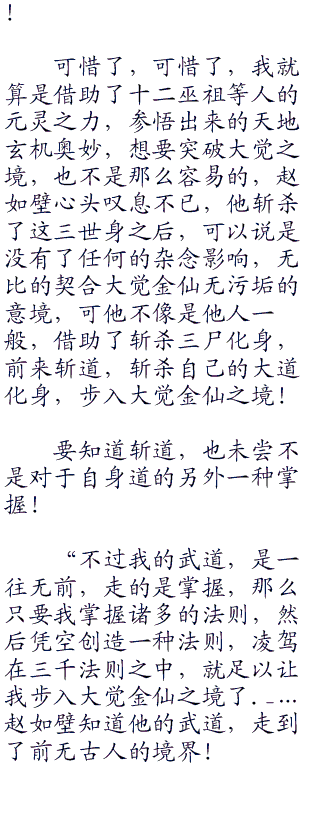 ！
可惜了，可惜了，我就
算是借助了十二巫祖等人的
元灵之力，参悟出来的天地
玄机奥妙，想要突破大觉之
境，也不是那么容易的，赵
如壁心头叹息不已，他斩杀
了这三世身之后，可以说是
没有了任何的杂念影响，无
比的契合大觉金仙无污垢的
意境，可他不像是他人一
般，借助了斩杀三尸化身，
前来斩道，斩杀自己的大道
化身，步入大觉金仙之境！
要知道斩道，也未尝不
是对于自身道的另外一种掌
握！
“不过我的武道，是一
往无前，走的是掌握，那么
只要我掌握诸多的法则，然
后凭空创造一种法则，凌驾
在三千法则之中，就足以让
我步入大觉金仙之境了．－…
赵如壁知道他的武道，走到
了前无古人的境界！